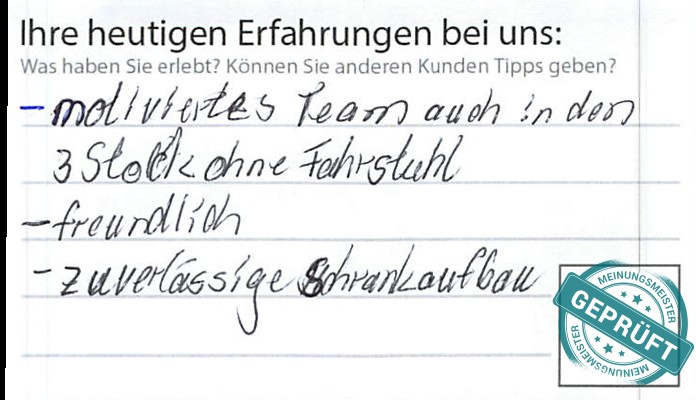 Ihre heutigen Erfahrungen bei uns:
Was haben Sie erlebt? Können Sie anderen Kunden Tipps geben?
- motiviertes Team auch in den
3 Stock ohne Fahrstuhl
- freundlich
- zuverlässige Schrankaufbau
MEINUNGSMEISTER
GEPRÜFT
MEINUNGSMEISTER